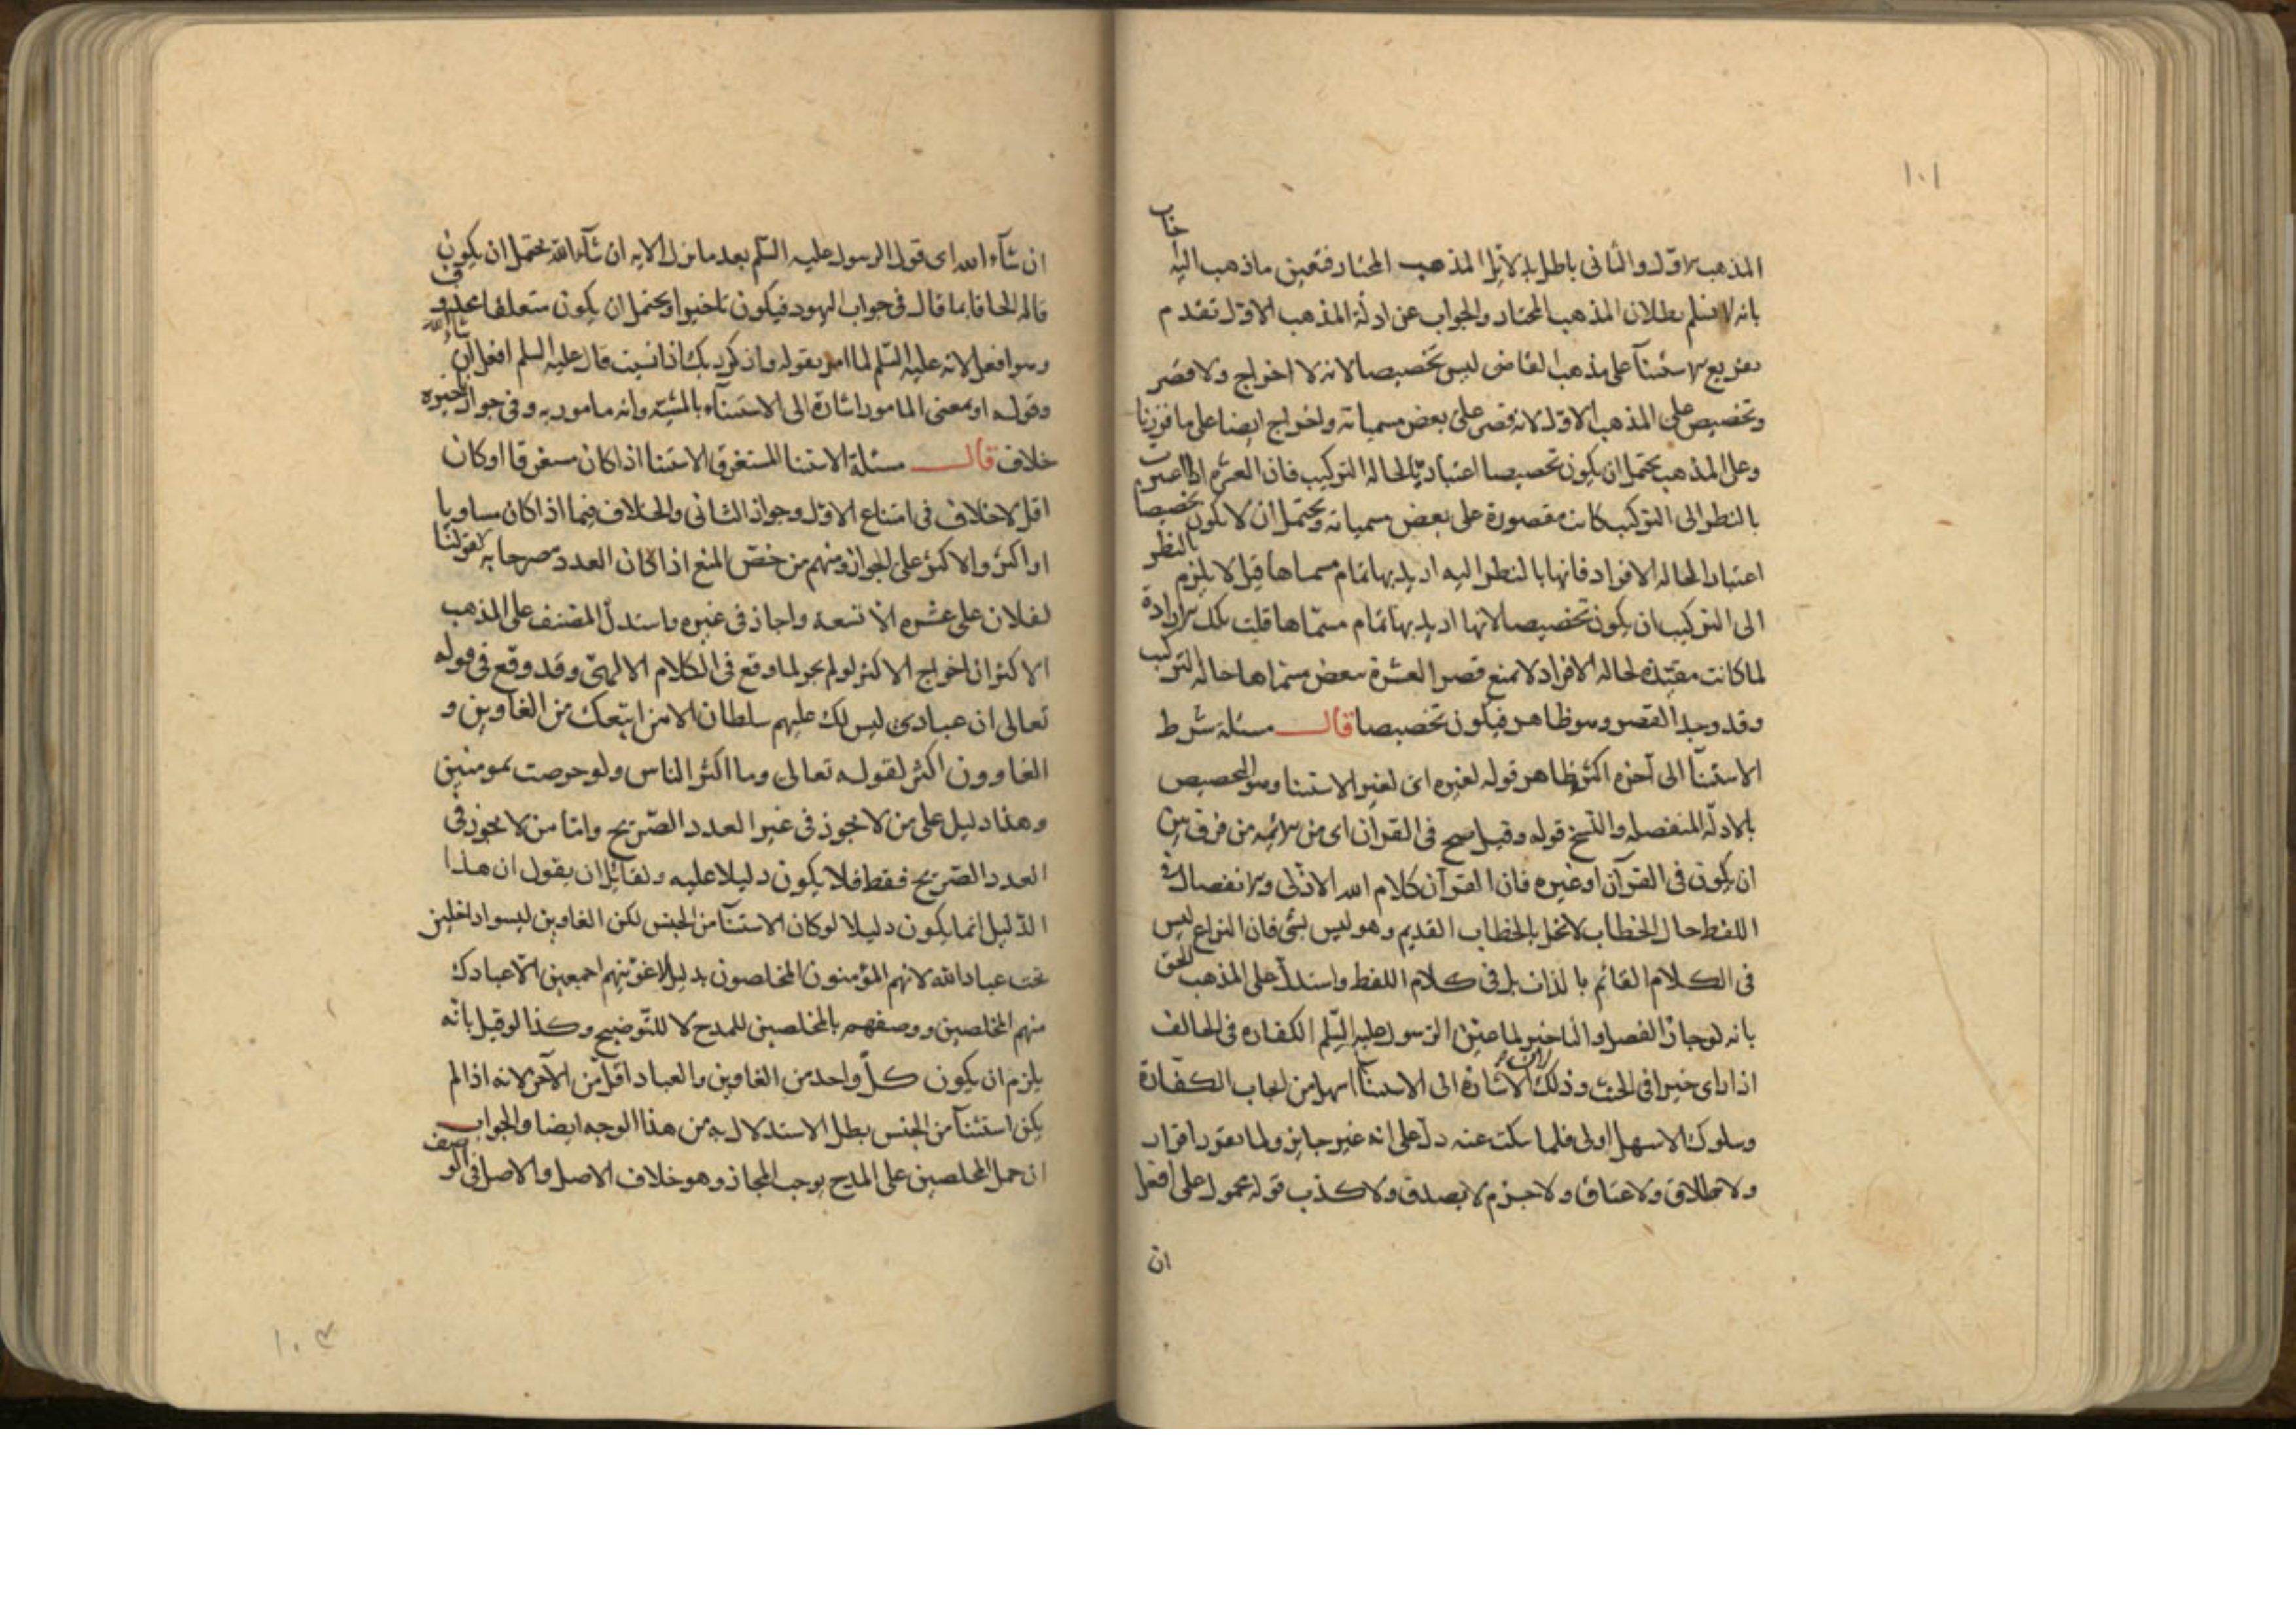 ١٠١
المذهب الاول والثانى باطل بدلائل المذهب المختار فتعين ماذهب اليه
بانه لا نسلم بطلان المذهب المختار والجواب عن ادلة المذهب الاول تقدم
تفريع الاستثنآ على مذهب القاضى ليس تخصيصا لانه لا اخراج ولا قصر
وتخصيص على المذهب الاول لانه قصر على بعض مسمياته واخراج ايضا على ما قررنا
وعلى المذهب يحتمل ان يكون تخصيصا اعتبارا لحالة التركيب فان العشرة اذا اعتبرت
بالنظر الى التركيب كانت مقصورة على بعض مسمياته ويحتمل ان لا يكون تخصيصا
اعتبارا لحالة الافراد فانها بالنظر اليه اريد بها تمام مسماها قيل لا يلزم بالنظر
الى التركيب ان يكون تخصيصا لانها اريد بها تمام مسماها قلت تلك الارادة
لما كانت مقيدة لحالة الافراد لا تمنع قصر العشرة ببعض مسماها حالة التركيب
وقد وجد القصر وهو ظاهر فيكون تخصيصا قال مسئلة شرط
الاستثنآ الى آخره اكثره ظاهر قوله لغيره اى لغير الاستثنا وهو التخصيص
بالادلة المنفصلة والنسخ قوله وقيل صح فى القرآن اى من الائمة من فرق بين
ان يكون فى القرآن او غيره فان القرآن كلام الله الازلى والانفصال فى
اللفظ حال الخطاب لا تخل بالخطاب القديم وهو ليس بشئ فان النزاع ليس
فى الكلام القائم بالذات بل فى كلام اللفظ واستدل على المذهب الحق
بانه لو جاز الفصل والتاخير لما عين الرسول عليه السلم الكفارة فى الحالف
اذا راى خيرا فى الحنث وذلك لان الاشارة الى الاستثنآ اسهل من ايجاب الكفارة
وسلوك الاسهل اولى فلما سكت عنه دل على انه غير جايز ولما تقرر اقرار
ولا طلاق ولا عتاق ولا جزم لا بصدق ولا كذب قوله محمول على افعل
ان
ان شآء الله اى قول الرسول عليه السلم بعد ما نزل الايه ان شآء الله يحتمل ان يكون
قاله الحاقا بما قال فى جواب اليهود فيكون تاخيرا ويحتمل ان يكون متعلقا بمحذوف
وهو افعل لانه عليه السلم لما امر بقوله واذكر ربك اذا نسيت قال عليه السلم افعل ان شآء الله
وقوله او بمعنى المامور اشارة الى الاستثناء بالمشية وانه مامور به وفى جواز تاخيره
خلاف قال مسئلة الاستثنا المستغرق الاستثنا اذا كان مستغرقا او كان
اقل لا خلاف فى امتناع الاول وجواز الثانى والخلاف فيما اذا كان مساويا
او اكثر والاكثر على الجواز ومنهم من خص المنع اذا كان العدد مصرحا به كقولنا
لفلان على عشره الا تسعه واجاز فى غيره واستدل المصنف على المذهب
الاكثر ان اخراج الاكثر لو لم يجز لما وقع فى الكلام الالهى وقد وقع فى قوله
تعالى ان عبادى ليس لك عليهم سلطان الا من اتبعك من الغاوين و
الغاوون اكثر لقوله تعالى وما اكثر الناس ولو حرصت بمومنين
وهذا دليل على من لا يجوز فى غير العدد الصريح واما من لا يجوز فى
العدد الصريح فقط فلا يكون دليلا عليه ولقائل ان يقول ان هذا
الدليل انما يكون دليلا لو كان الاستثنآ من الجنس لكن الغاوين ليسوا داخلين
تحت عباد الله لانهم المؤمنون المخلصون بدليل لاغوينهم اجمعين الا عبادك
منهم المخلصين ووصفهم بالمخلصين للمدح لا للتوضيح وكذا لو قيل بانه
يلزم ان يكون كل واحد من الغاوين والعباد اقل من الآخر لانه اذا لم
يكن استثنآ من الجنس بطل الاستدلال به من هذا الوجه ايضا والجواب
ان حمل المخلصين على المدح يوجب المجاز وهو خلاف الاصل والاصل فى الوصف